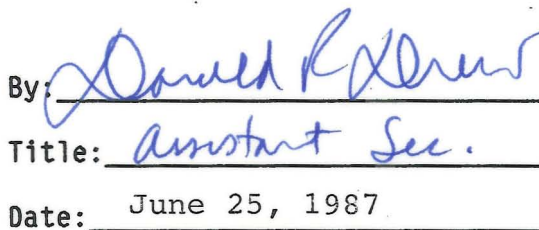 By: Donald R Drew
Title: Assistant Sec.
Date: June 25, 1987